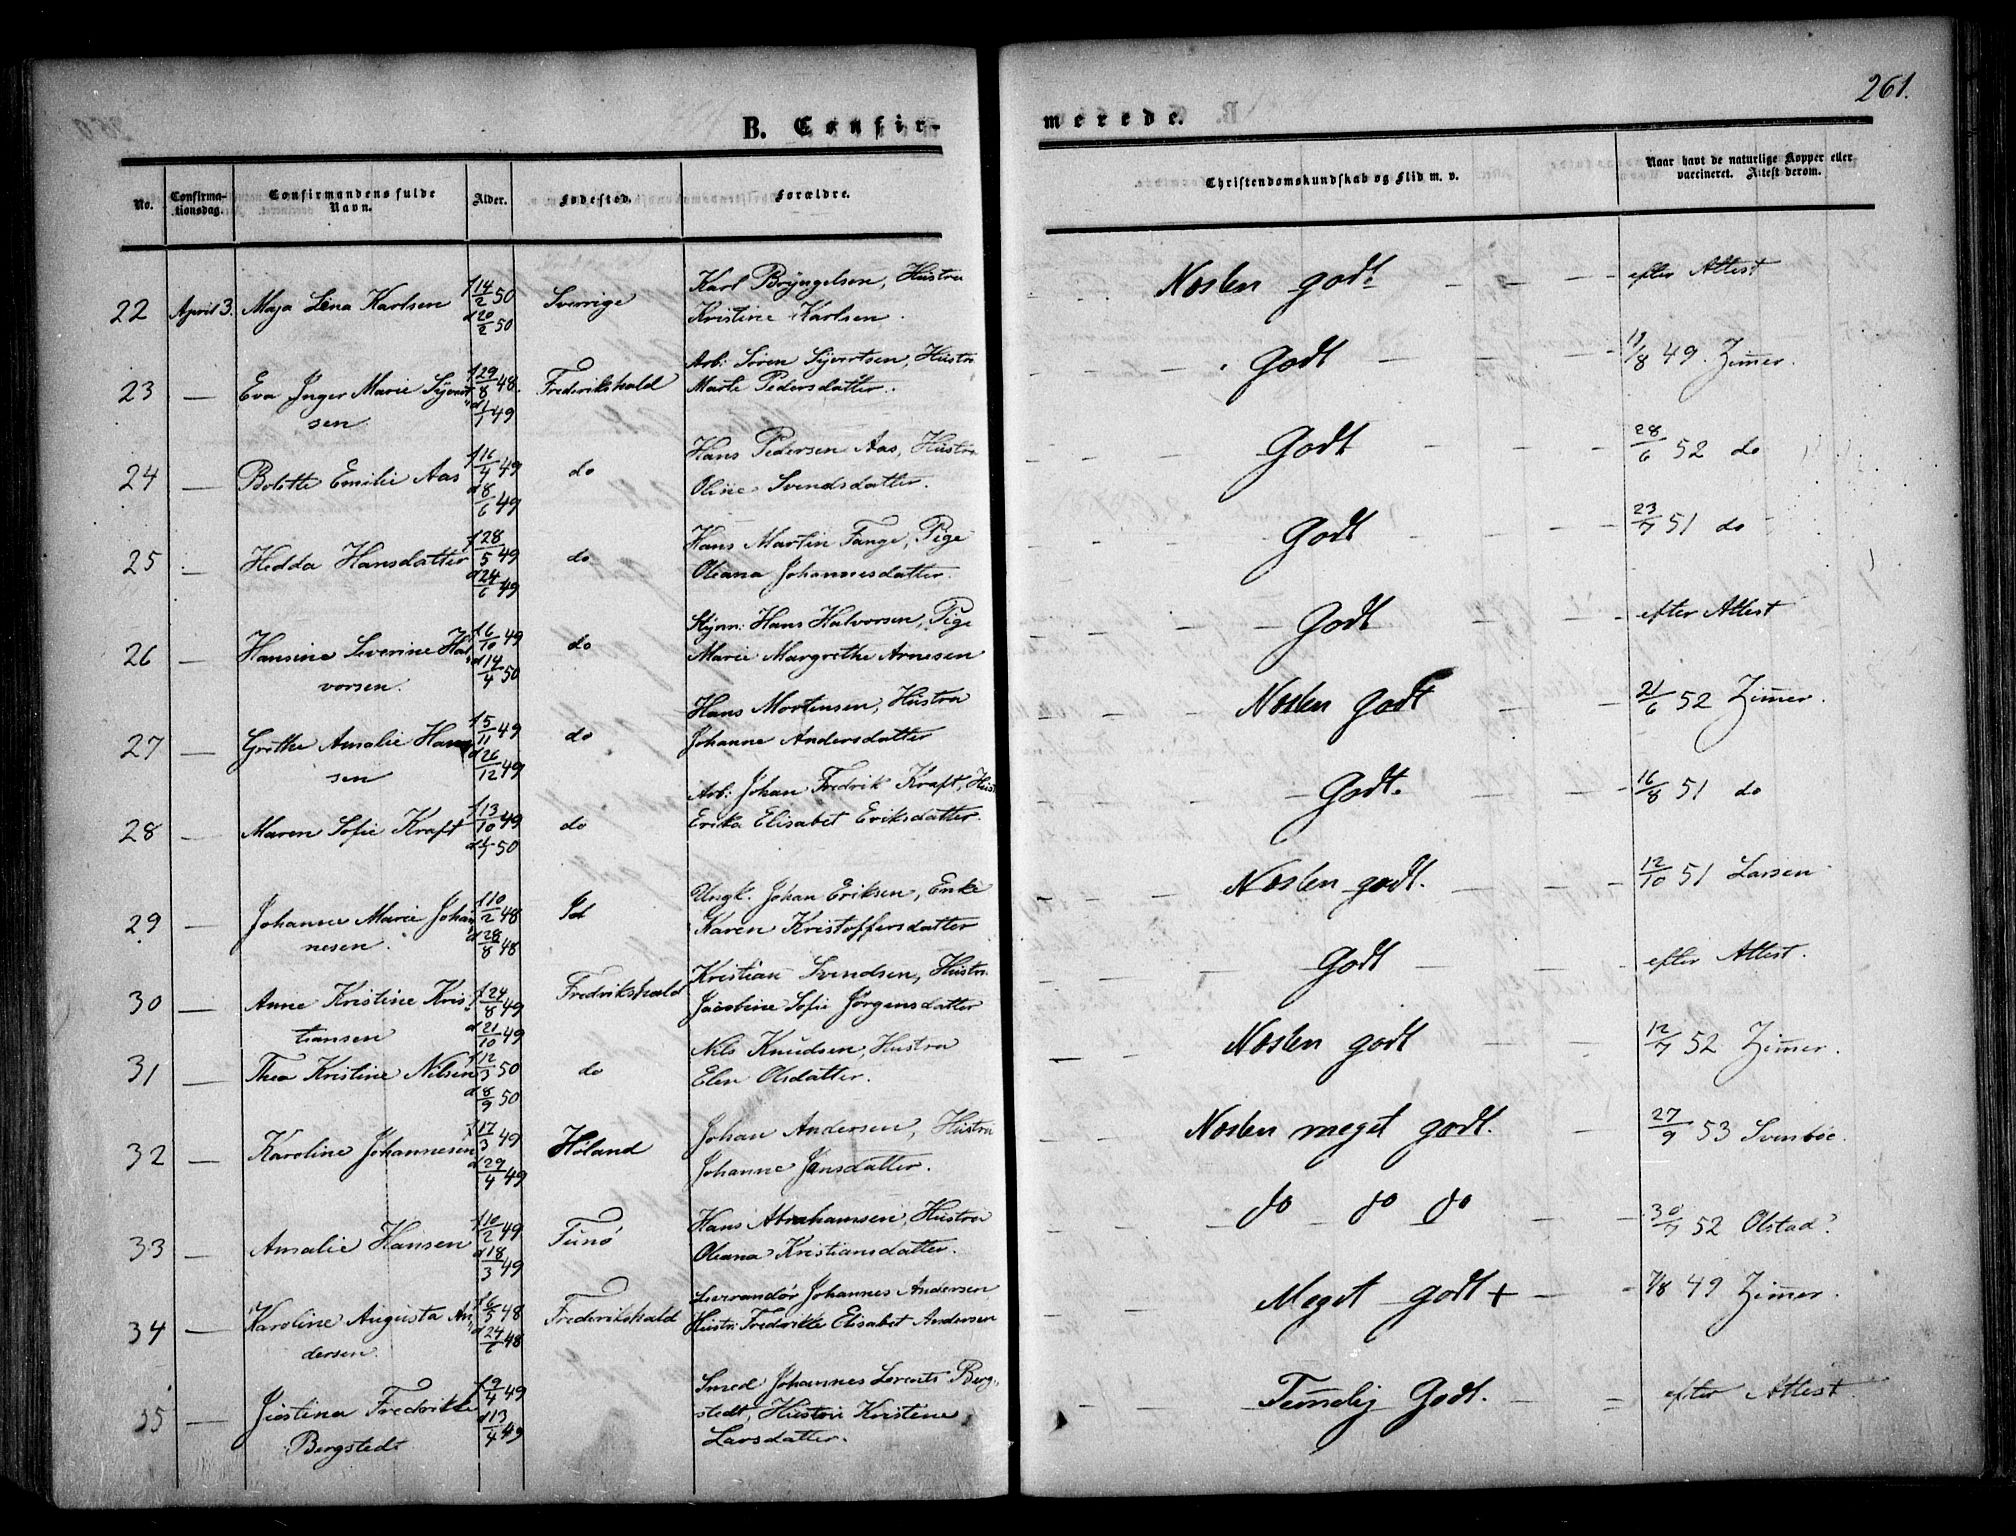 261.
B. Confir-
merede.
No.
Confirma-
tionsdag.
Confirmandens fulde
Navn.
Alder.
Fødested.
Forældre.
Christendomskundskab og Flid m. v.
Naar havt de naturlige Kopper eller
vaccineret. Attest derom.
22 April 3. Maja Lena Karlsen f 14/2 50 d 20/2 50 Sverrige Karl Bryngelsen, Hustru
Kristine Karlsen. Næsten godt. — — — efter Attest
23 — Eva Inger Marie Syvert f 29/8 48. d 1/1 49 Frederikshald Arb: Søren Syvertsen, Hustru
sen Marte Pedersdatter. Godt — — — 11/8 49. Zimer.
24 — Bolette Emilie Aas f 16/4 49 d 8/6 49 do Hans Pedersen Aas, Hustru
Oline Svendsdatter. Godt — — — 28/6 52 do
25 — Hedda Hansdatter f 28/5 49 d 24/6 49 do Hans Martin Fange, Pige
Oleana Johannesdatter. Godt — — — 23/7 51 do
26 — Hansine Severine Hal f 6/10 49 d 14/4 50 do Styrm: Hans Halvorsen, Pige
vorsen. Marie Margrethe Arnesen Godt — — efter Attest
27 — Grethe Amalie Han f 5/11 49 d 26/12 49 do Hans Mortensen, Hustru
sen Johanne Andersdatter Næsten godt — — 21/6 52 Zimer.
28 — Maren Sofie Kraft f 13/10 49 d 1/1 50 do Arb: Johan Fredrik Kraft, Hust
Erika Elisabet Eriksdatter. Godt. — — 16/8 51 do
29 — Johanne Marie Johan f 10/2 48 d 28/8 48 Id Ungk. Johan Eriksen, Enke
nesen. Karen Kristoffersdatter Næsten godt. — — — 12/10 51 Larsen
30 — Anne Kristine Kris f 24/8 49 d 21/10 49 Fredrikshald Kristian Svendsen, Hustru
tiansen Jacobine Sofie Jørgensdatter Godt — — efter Attest.
31 — Thea Kristine Nilsen f 12/3 50 d 8/9 50 do Nils Knudsen, Hustru
Elen Olsdatter. Næsten godt — — 12/7 52 Zimer.
32 — Karoline Johannesen f 17/3 49 d 29/4 49 Høland Johan Andersen, Hustru
Johanne Jansdatter. Næsten meget godt. — 27/9 53 Svenbøe.
33 — Amalie Hansen f 10/2 49 d 18/3 49 Tunø Hans Abrahamsen, Hustru
Oleana Kristiansdatter. do — do — do — — 30/7 52 Olstad?
34 — Karoline Augusta An f 6/5 48 d 24/6 48 Frederikshald Leverandør Johannes Andersen
dersen. Hustr: Fredrikke Elisabet Andersen Meget godt + — — 7/8 49 Zimer.
35 — Justina Fredrikke f 9/4 49 d 13/4 49 Smed Johannes Lorents Berg
Bergstedt stedt, Hustru Kristine
Larsdatter. Temelig Godt. — = efter Attest.